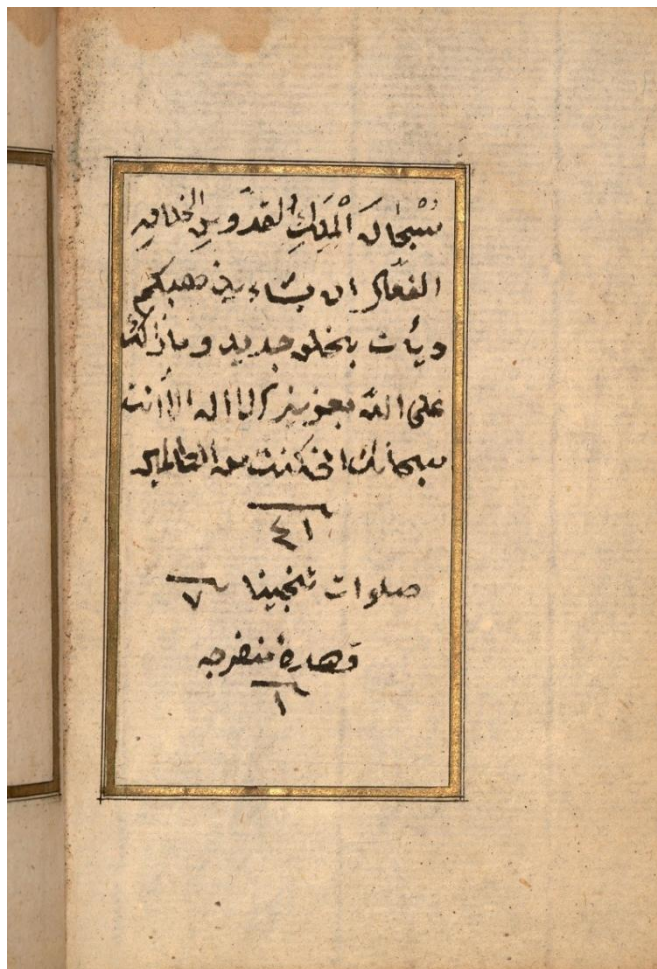 سُبْحَانَ الْمَلِكِ الْقُدُّوسِ الخلاقِ
الفعّال ان يشاء يذهبكم
ويأت بخلق جديد وما ذلك
على الله بعزيز لا اله الا أنت
سبحانك انى كنت من الظالمين
٤١
صلوات تنجينا ٧
منفرجه
١